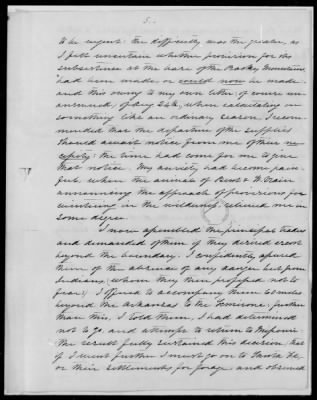 5.
to be urgent: the difficulty was the greater, as
I felt uncertain whether provision for this
subsistence at the base of the Rocky Mountains
had been made, or could now be made
and this owing to my own letter (of course un-
answered) of Aug 24th, when calculating on
something like an ordinary season, I recom-
mended that the departure of the supplies
should await notice from me of their ne-
cessity: the time had come for me to give
that notice. My anxiety had become pain-
ful, when the arrival of Bent's train
announcing the approach of provisions for
wintering in the wilderness relieved me in
some degree.
I now assembled the principal traders
and demanded of them if they desired escort
beyond the boundary. I confidently assured
them of the absence of any danger but from
Indians, (whom they then professed not to
fear) I offered to accompany them 60 miles
beyond the Arkansas to the Semirone; further
than this, I told them, I had determined
not to go, and attempt to return to Missouri.
The result fully sustained this decision, but
if I went further I must go on to Santa Fe,
or their settlements, for forage and